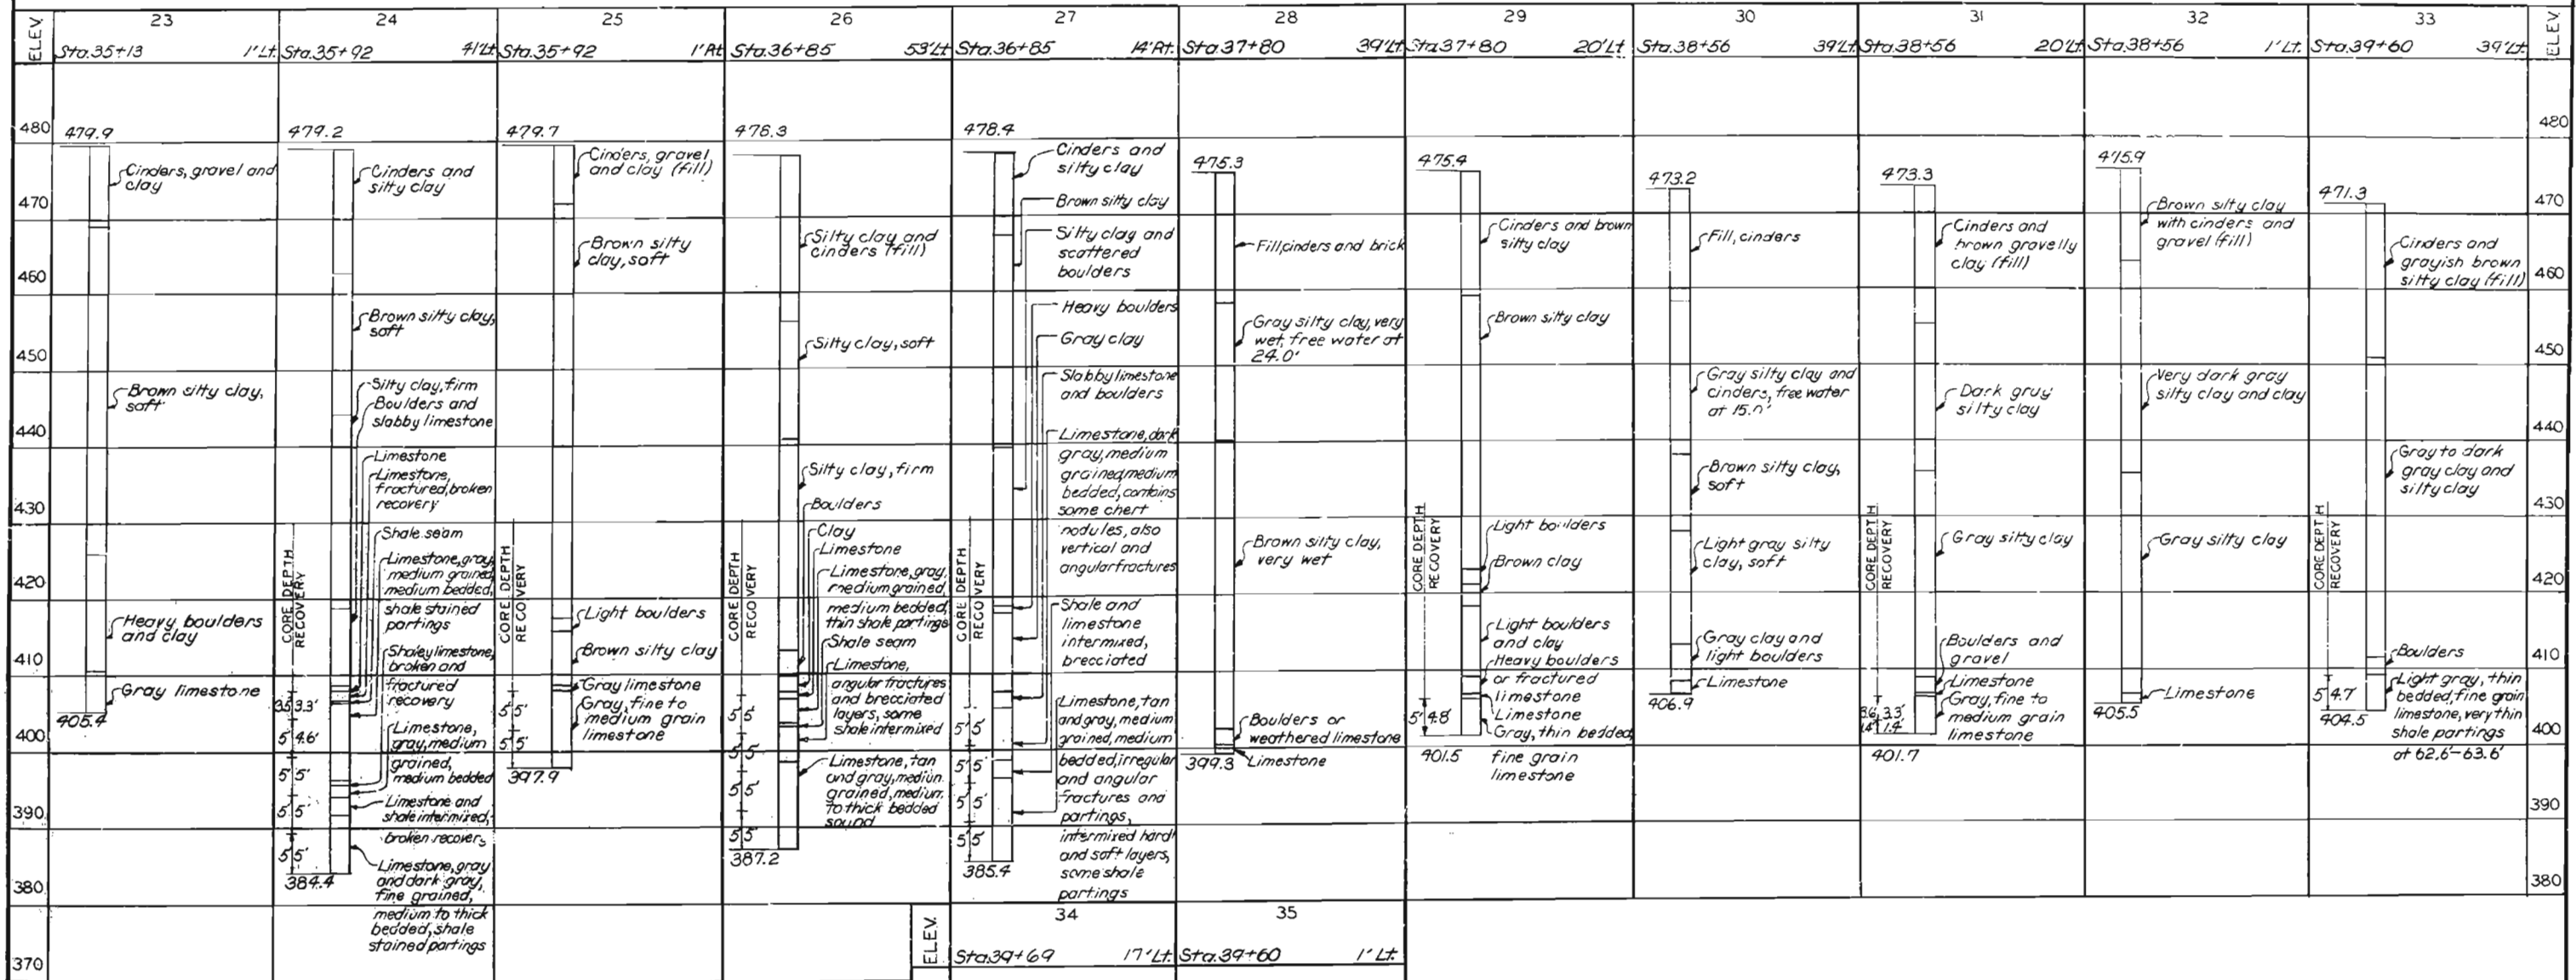 ELEV.
23
24
25
26
27
28
29
30
31
32
33
ELEV.
Sta.35+13 1' Lt.
Sta.35+92 41' Lt.
Sta.35+92 1' Rt.
Sta.36+85 53' Lt.
Sta.36+85 14' Rt.
Sta.37+80 39' Lt.
Sta.37+80 20' Lt.
Sta.38+56 39' Lt.
Sta.38+56 20' Lt.
Sta.38+56 1' Lt.
Sta.39+60 39' Lt.
480
470
460
450
440
430
420
410
400
390
380
370
479.9
Cinders, gravel and
clay
Brown silty clay,
soft
Heavy boulders
and clay
Gray limestone
405.4
479.2
Cinders and
silty clay
Brown silty clay,
soft
Silty clay, firm
Boulders and
slabby limestone
Limestone
Limestone,
fractured, broken
recovery
Shale seam
Limestone, gray,
medium grained,
medium bedded,
shale stained
partings
Shaley limestone,
broken and
fractured
recovery
Limestone,
gray, medium
grained,
medium bedded
Limestone and
shale intermixed,
broken recovery
Limestone, gray
and dark gray,
fine grained,
medium to thick
bedded, shale
stained partings
CORE DEPTH
RECOVERY
3.5' 3.3'
5' 4.6'
5' 5'
5' 5'
5' 5'
384.4
479.7
Cinders, gravel
and clay (fill)
Brown silty
clay, soft
Light boulders
Brown silty clay
Gray limestone
Gray, fine to
medium grain
limestone
CORE DEPTH
RECOVERY
5' 5'
5' 5'
397.9
478.3
Silty clay and
cinders (fill)
Silty clay, soft
Silty clay, firm
Boulders
Clay
Limestone
Limestone, gray,
medium grained,
medium bedded,
thin shale partings
Shale seam
Limestone,
angular fractures
and brecciated
layers, some
shale intermixed
Limestone, tan
and gray, medium
grained, medium
to thick bedded
sound
CORE DEPTH
RECOVERY
5' 5'
5' 5'
5' 5'
5' 5'
387.2
478.4
Cinders and
silty clay
Brown silty clay
Silty clay and
scattered
boulders
Heavy boulders
Gray clay
Slabby limestone
and boulders
Limestone, dark
gray, medium
grained, medium
bedded, contains
some chert
nodules, also
vertical and
angular fractures
Shale and
limestone
intermixed,
brecciated
Limestone, tan
and gray, medium
grained, medium
bedded, irregular
and angular
fractures and
partings,
intermixed hard
and soft layers,
some shale
partings
CORE DEPTH
RECOVERY
5' 5'
5' 5'
5' 5'
5' 5'
385.4
475.3
Fill, cinders and brick
Gray silty clay, very
wet, free water at
24.0'
Brown silty clay,
very wet
Boulders or
weathered limestone
Limestone
399.3
475.4
Cinders and brown
silty clay
Brown silty clay
Light boulders
Brown clay
Light boulders
and clay
Heavy boulders
or fractured
limestone
Limestone
Gray, thin bedded,
fine grain
limestone
CORE DEPTH
RECOVERY
5' 4.8'
401.5
473.2
Fill, cinders
Gray silty clay and
cinders, free water
at 15.0'
Brown silty clay,
soft
Light gray silty
clay, soft
Gray clay and
light boulders
Limestone
406.9
473.3
Cinders and
brown gravelly
clay (fill)
Dark gray
silty clay
Gray silty clay
Boulders and
gravel
Limestone
Gray, fine to
medium grain
limestone
CORE DEPTH
RECOVERY
3.6' 3.3'
1.4' 1.4'
401.7
475.9
Brown silty clay
with cinders and
gravel (fill)
Very dark gray
silty clay and clay
Gray silty clay
Limestone
405.5
471.3
Cinders and
grayish brown
silty clay (fill)
Gray to dark
gray clay and
silty clay
Boulders
Light gray, thin
bedded, fine grain
limestone, very thin
shale partings
at 62.6'-63.6'
CORE DEPTH
RECOVERY
5' 4.7'
404.5
480
470
460
450
440
430
420
410
400
390
380
ELEV.
34
35
Sta.39+69 17' Lt.
Sta.39+60 1' Lt.